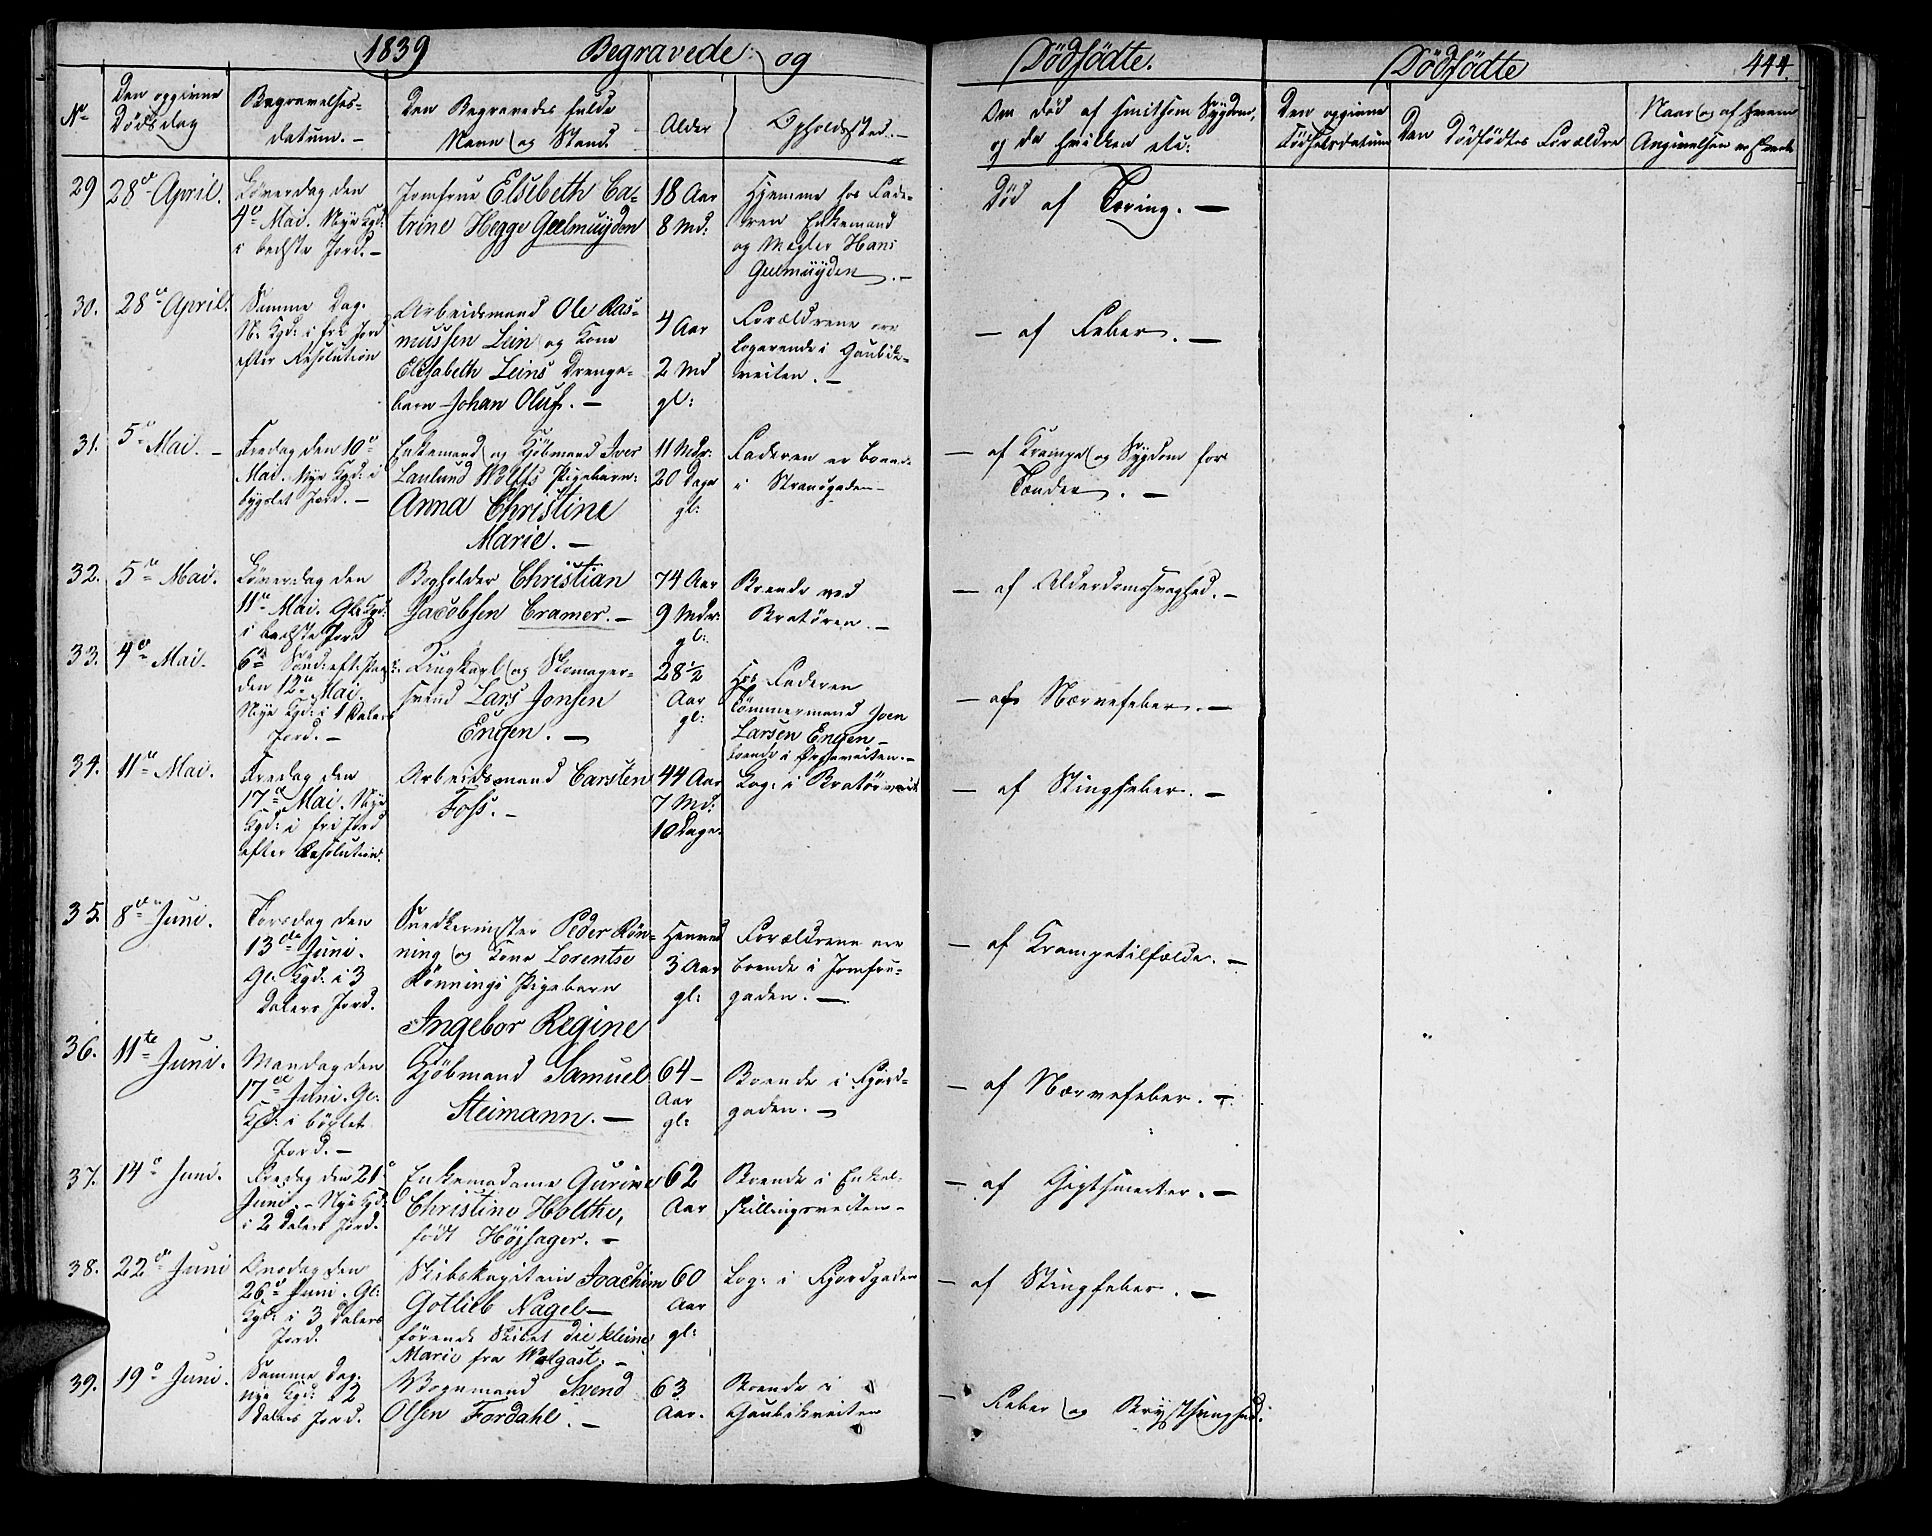 1839 Begravede og Dödfödte. Dödfödte 444
No
Den opgivne Dödsdag
Begravelses-datum.
Den Begravedes fulde Navn og Stand
Alder
Opholdssted.
Om död af smitsom Sygdom, og da hvilken etc:
Den opgivne Födselsdatum
Den Dödfödtes Forældre
Naar og af hvem Angivelsen er skeet
29
28de April.
Löverdag den
4de Mai. Nye Kgd:
i bedste Jord. -
Jomfrue Elsebeth Ca-
trine Hegge Geelmuyden
18 Aar
8 Md:
Hjemme hos Fade-
ren Enkemand
og Mægler Hans
Geelmüyden. -
Död af Tæring. -
30.
28de April.
Samme Dag.
N. Kgd: i fri Jord
efter Resolution
Arbeidsmand Ole Ras-
mussen Lein og Kone
Elisabeth Leins Drenge-
barn Johan Oluf. -
4 Aar
2 Md
gl:
Forældrene ere
Logerende i Gaubæk-
veiten. -
- af Feber. -
31.
5te Mai. -
Fredag den 10de
Mai. Nye Kgd: i
bygslet Jord. -
Enkemand og Kjöbmand Iver
Laulund Wolffs Pigebarn:
Anna Christine
Marie. -
11 Mdr:
20 Dage
gl:
Faderen er boende
i Strandgaden -
- af Krampe og Sygdom for
Tænder. -
32.
5te Mai.
Löverdag den
11te Mai. Gl: Kgd:
i bedste Jord
Bogholder Christian
Jacobsen Cramer. -
74 Aar
9 Mdr:
gl:
Boende ved
Bratören. -
- af Alderdomssvaghed. -
33.
4de Mai.
6te Sönd: eft: Paaske
den 12te Mai.
Nye Kgd: i 1 Dalers
Jord. -
Ungkarl og Skomager-
svend Lars Jonsen
Engen. -
28 1/2
Aar
gl:
Hos Faderen
Tömmermand Joen
Larsen Engen -
boende i -
- af Nervefeber. -
34.
11te Mai.
Fredag den
17de Mai. Nye
Kgd: i fri Jord
efter Resolution.
Arbeidsmand Carsten
Foss. -
44 Aar
7 Md:
10 Dage.
Log: i Bratörveit
- af Stingfeber. -
35.
8de Juni.
Torsdag den
13de Juni.
Gl: Kgd: i 3
Dalers Jord.
Snedkermester Peder Rön-
ning og Kone Lorentse
Rönnings Pigebarn
Ingebor Regine
Henved
3 Aar
gl:
Forældrene ere
boende i Jomfru-
gaden. -
- af Krampetilfælde. -
36.
11te Juni.
Mandag den
17de Juni. Gl:
Kgd: i böxlet
Jord. -
Kjöbmand Samuel
Steimann. -
64 -
Aar
gl:
Boende i Fjord-
gaden. -
- af Nervefeber. -
37.
14de Juni.
Fredag den 21de
Juni. - Nye Kgd:
i 2 Dalers Jord.
Enkemadame Gurine
Christine Holthe,
födt Höjsager. -
62
Aar
Boende i Enkel-
skillingsveiten -
- af Gigtsmerter. -
38.
22de Juni
Onsdag den
26de Juni. Gl:
Kgd: i 3 Dalers
Jord.
Skibskapitain Joachim
Gottlieb Nagel -
förende Skibet die kleine
Marie fra Wolgast. -
60
Aar
gl:
Log: i Fjordgaden
- af Stingfeber. -
39.
19de Juni.
Samme Dag.
nye Kgd: i 2
Dalers Jord.
Vognmand Svend
Olsen Fordahl. -
63
Aar.
Boende i
Gaubækveiten
- Feber og Brystsvaghed.